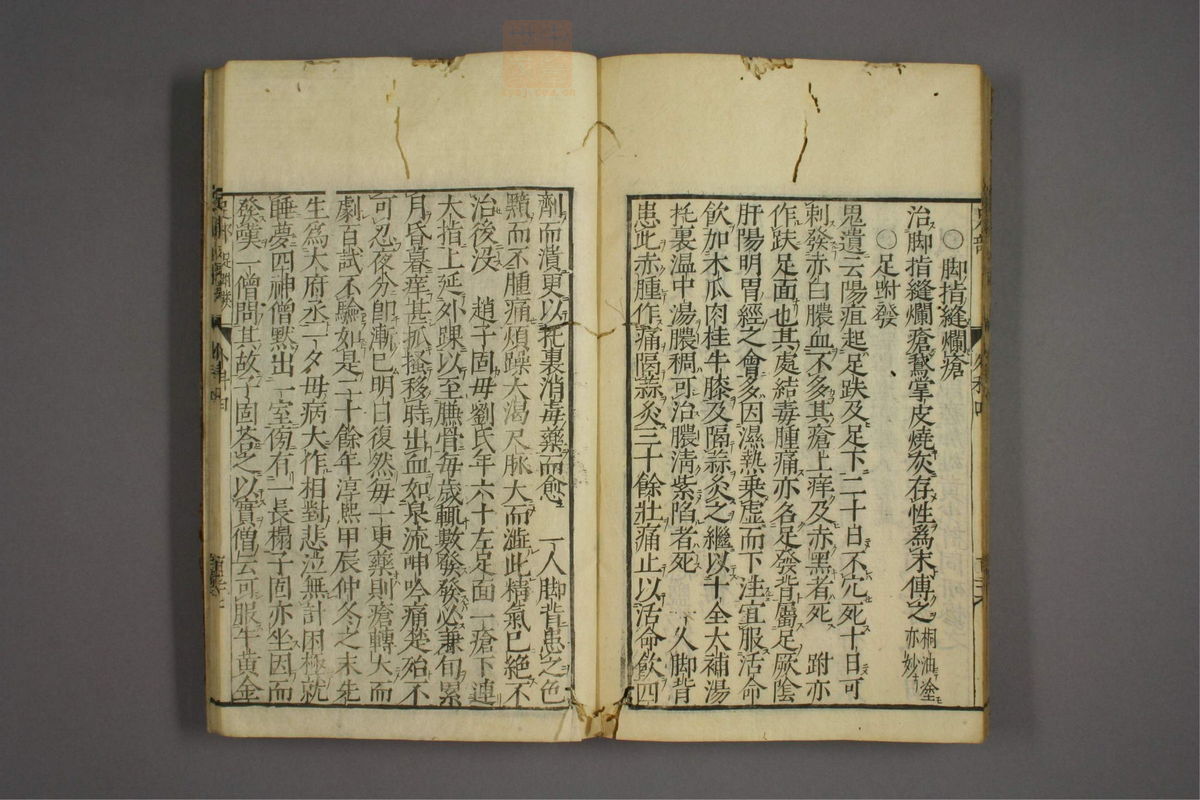 ○脚指縫爛瘡
治脚指縫爛瘡鵞掌皮燒灰存性爲末傅之桐油塗亦妙
○足跗發
鬼遺云陽疽起足趺及足下二十日不穴死十日可
刺發赤白膿血不多其瘡上痒及赤黑者死 跗亦
作趺足面也其處結毒腫痛亦名足發背屬足厥陰
肝陽明胃經之會多因濕熱乗虚而下注宜服活命
飲加木瓜肉桂牛膝及隔蒜灸之繼以十全大補湯
托裏温中湯膿稠可治膿清紫陷者死 一人脚背
患此赤腫作痛隔蒜灸三十餘壯痛止以活命飲四
劑而潰更以托裏消毒藥而愈 一人脚背患之色
黯而不腫痛煩躁大渴尺脉大而澁此精氣已絶不
治後没 趙子固母劉氏年六十左足面一瘡下連
大指上延外踝以至臁骨毎歳輒數發發必兼旬累
月昏暮痒甚抓搔移時出血如泉流呻吟痛楚殆不
可忍夜分即漸已明日復然毎一更藥則瘡轉大而
劇百試不驗如是二十餘年淳熙甲辰仲冬之末先
生爲大府丞一夕母病大作相對悲泣無計困極就
睡夢四神僧默出一室傍有一長榻子固亦坐因而
發嘆一僧問其故子固荅之以實僧云可服牛黄金